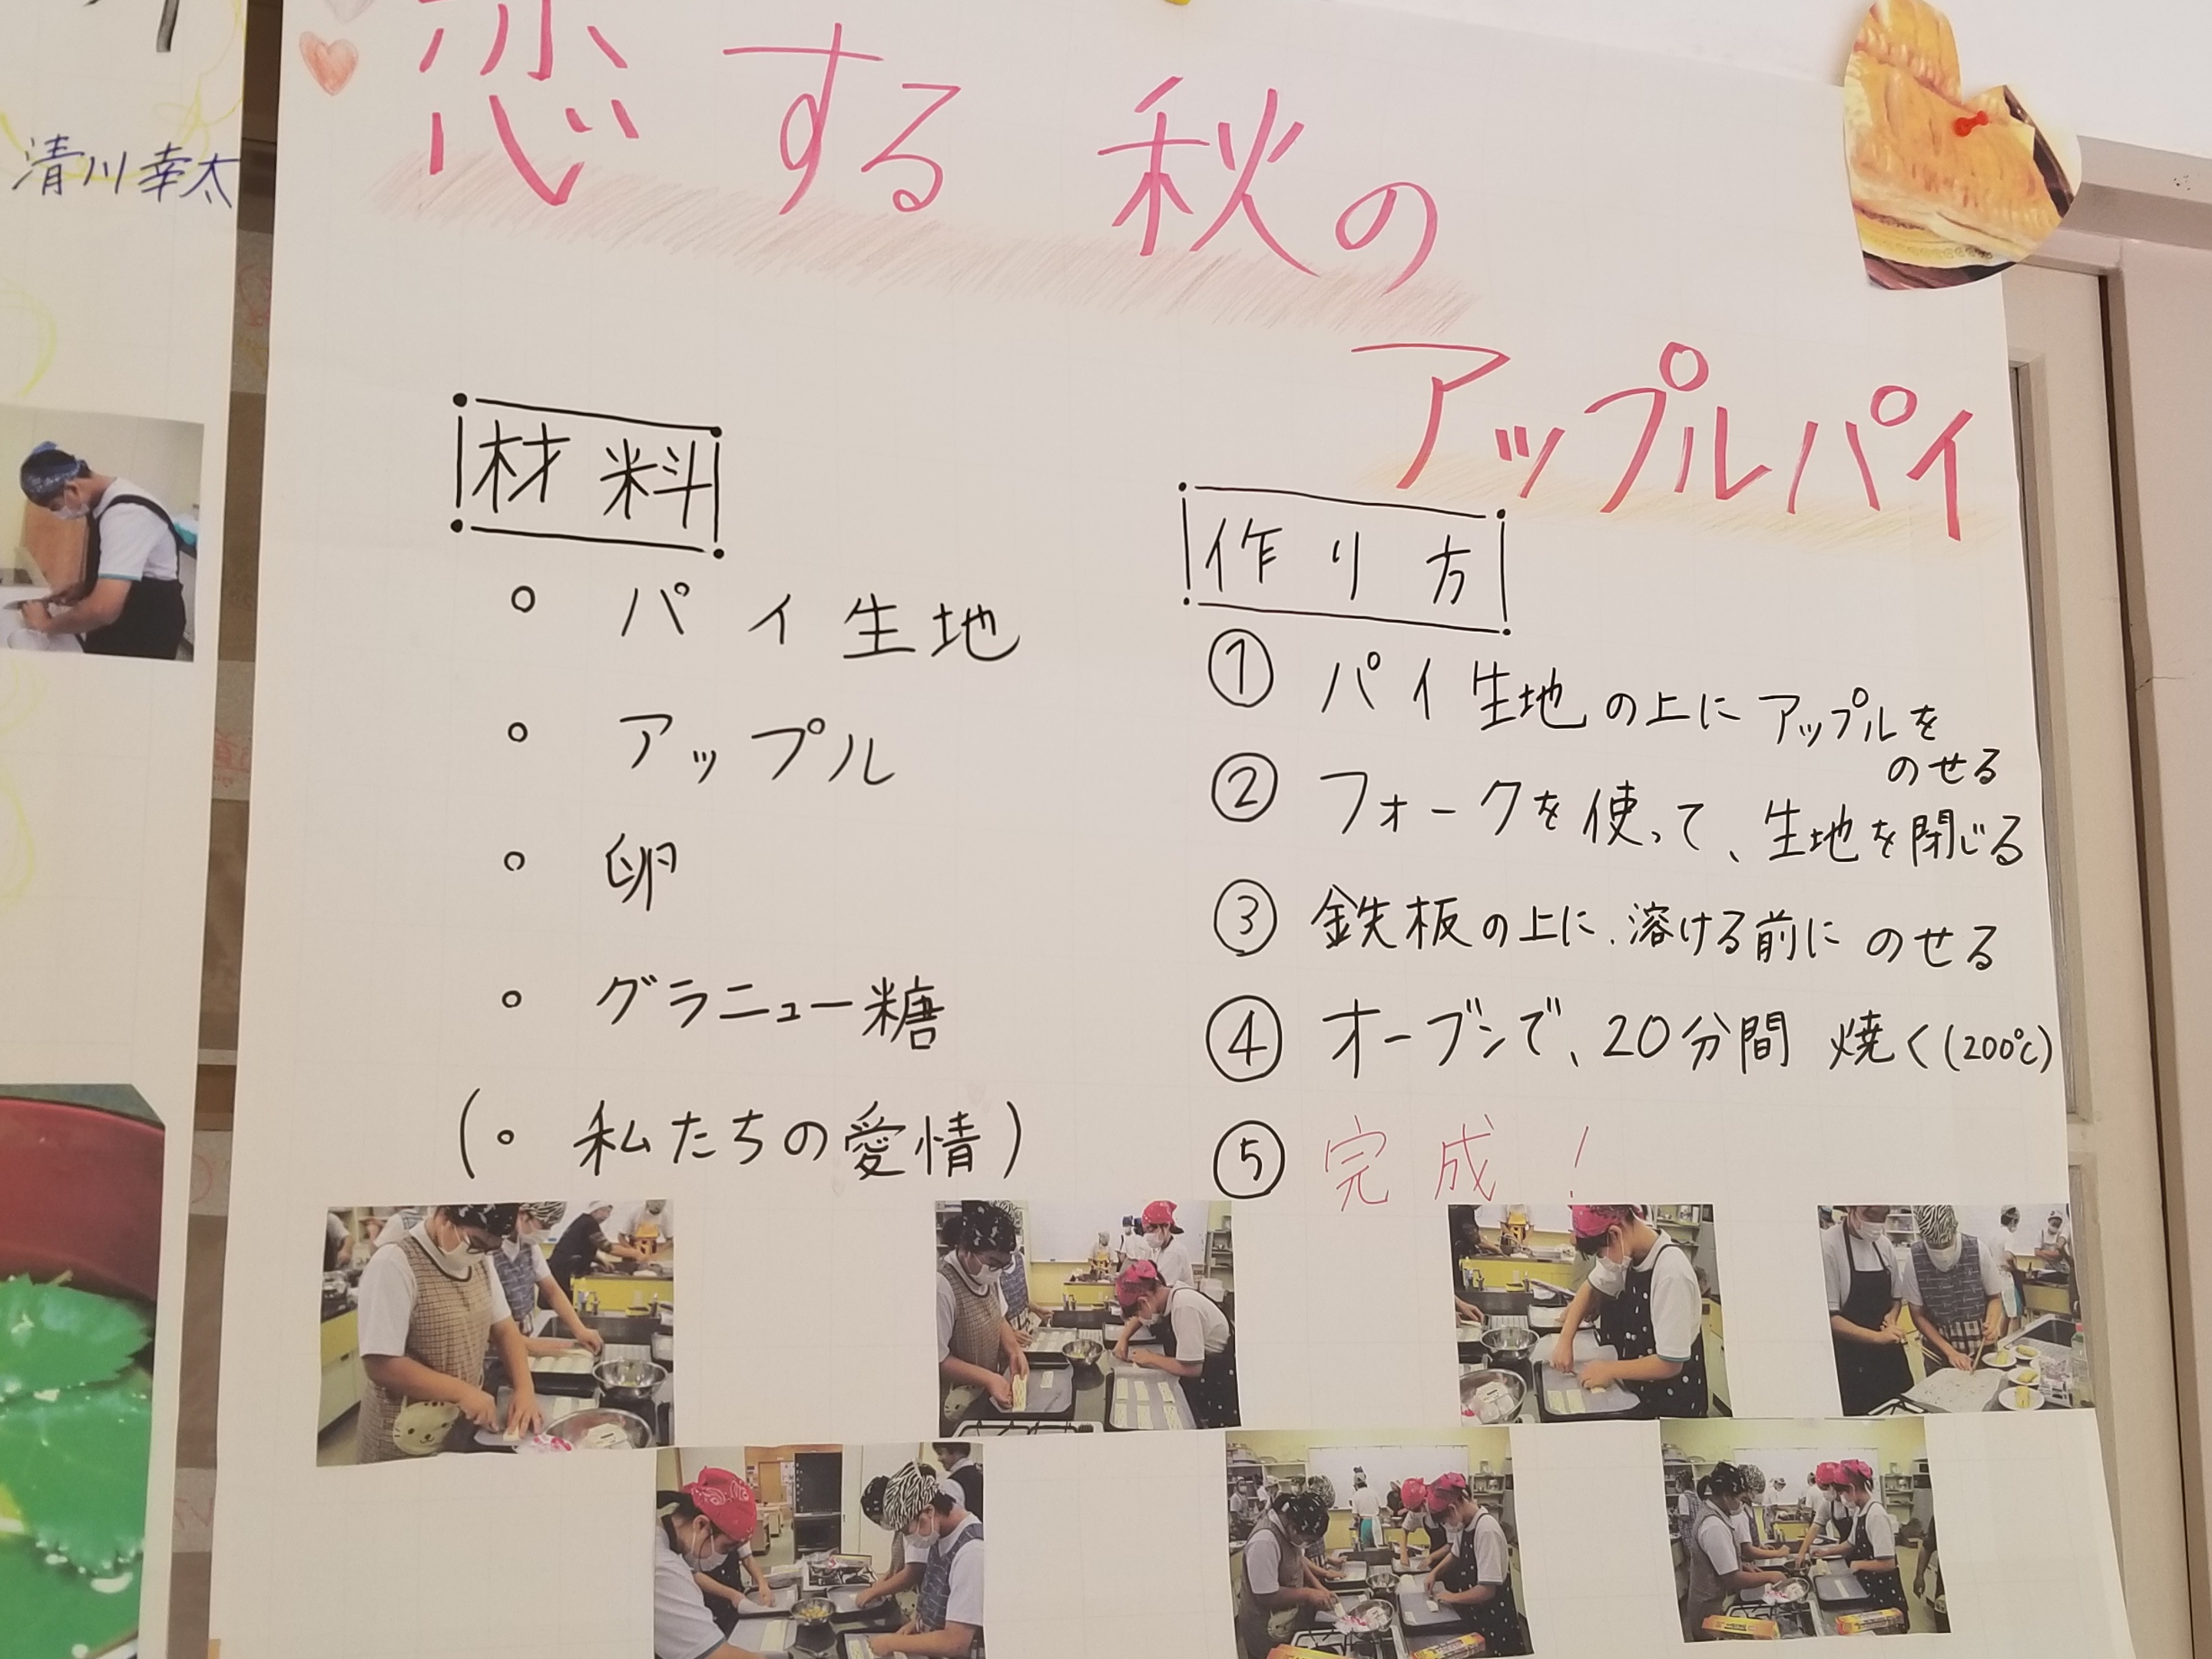 清川幸太
恋する秋の
アップルパイ
材料
○ パイ生地
○ アップル
○ 卵
○ グラニュー糖
(○ 私たちの愛情)
作り方
① パイ生地の上にアップルを
のせる
② フォークを使って、生地を閉じる
③ 鉄板の上に、溶ける前にのせる
④ オーブンで、20分間 焼く(200℃)
⑤ 完成!